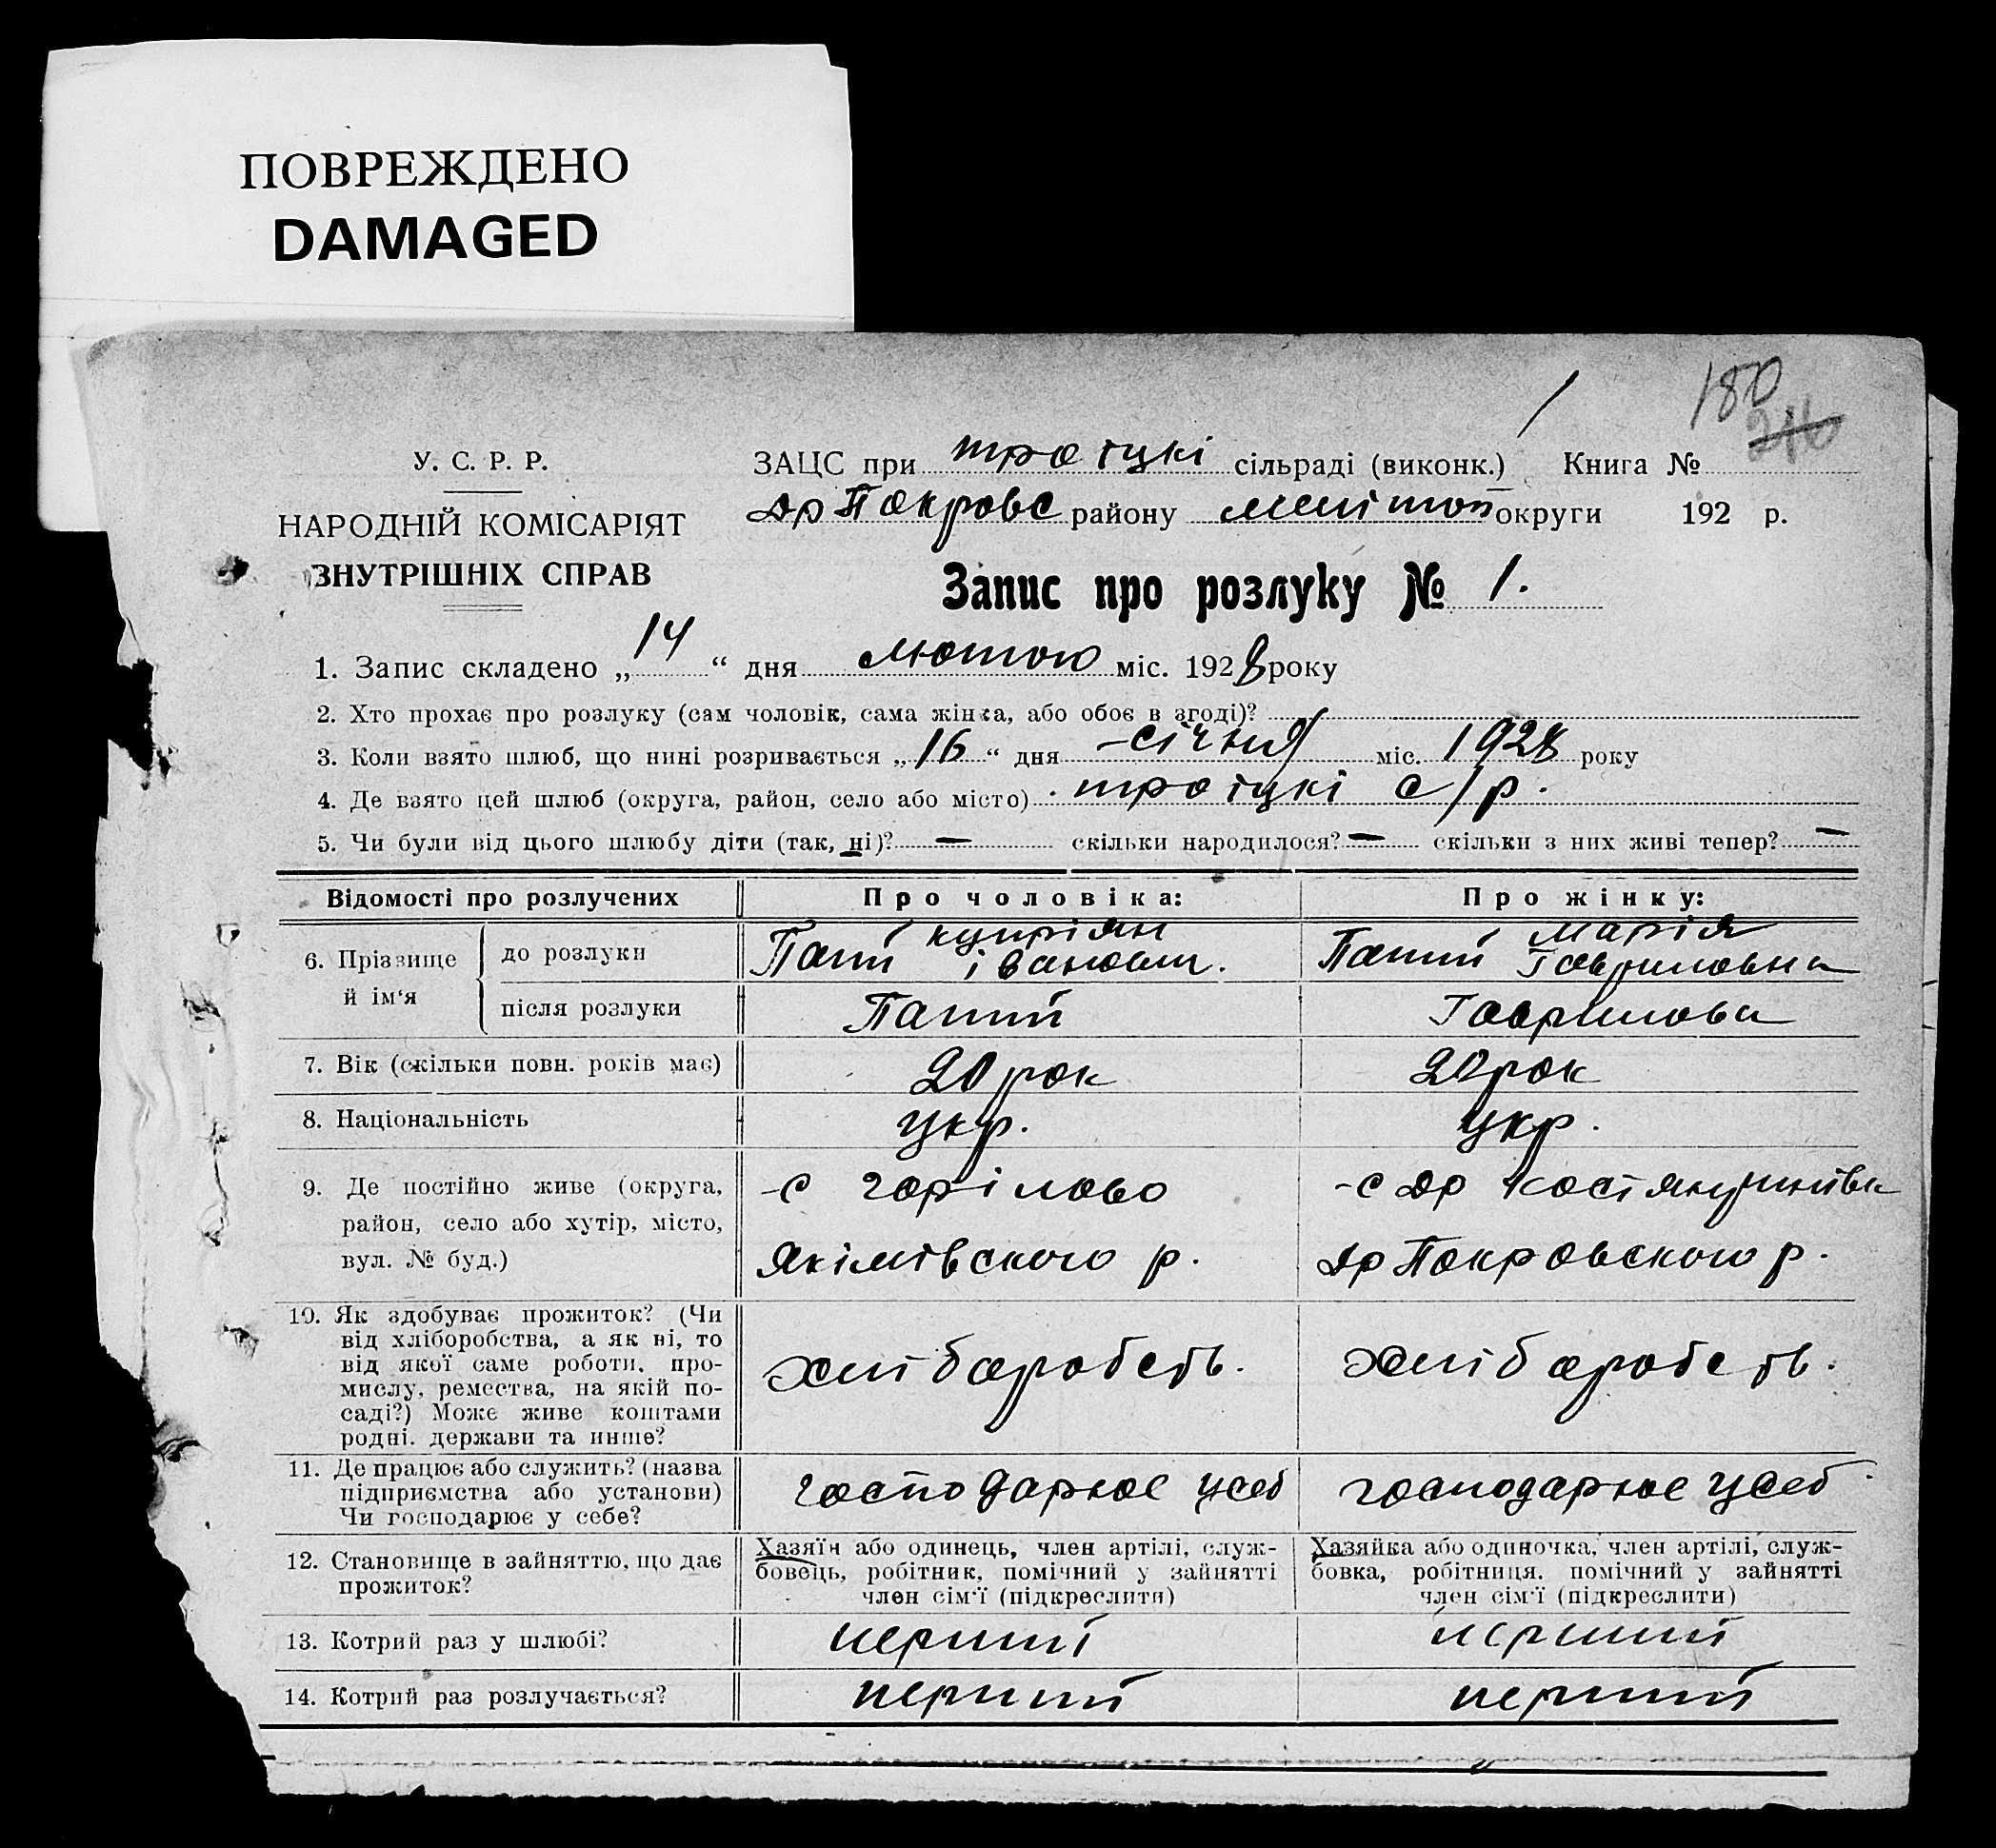 ПОВРЕЖДЕНО
DAMAGED
1
180
246
У. С. Р. Р.
НАРОДНІЙ КОМІСАРІЯТ
ЗНУТРІШНІХ СПРАВ
ЗАЦС при троіцкі сільраді (виконк.) Книга №
др Покровс району мелітоп округи 192 р.
Запис про розлуку № 1.
1. Запис складено „14“ дня лютого міс. 1928 року
2. Хто прохає про розлуку (сам чоловік, сама жінка, або обоє в згоді)?
3. Коли взято шлюб, що нині розривається „16“ дня січня міс. 1928 року
4. Де взято цей шлюб (округа, район, село або місто) троіцкі с/р.
5. Чи були від цього шлюбу діти (так, ні)? — скільки народилося? — скільки з них живі тепер? —
Відомості про розлучених Про чоловіка: Про жінку:
6. Прізвище й ім‘я
до розлуки Купріян Іванович. Марія Гавриловна
після розлуки Гаврилова
7. Вік (скільки повн. років має) 20 рок 20 рок
8. Національність укр. укр.
9. Де постійно живе (округа, -с горілово -с др
район, село або хутір, місто,
вул. № буд.) Якімівского р. др Покровского р.
10. Як здобуває прожиток? (Чи
від хліборобства, а як ні, то
від якої саме роботи, про-
мислу, ремества, на якій по-
саді?) Може живе коштами
родні, держави та инше?
хліборобств. хліборобств.
11. Де працює або служить? (назва
підприємства або установи)
Чи господарює у себе?
господарює усеб господарює усеб
12. Становище в зайняттю, що дає
прожиток?
Хазяїн або одинець, член артілі, служ-
бовець, робітник, помічний у зайнятті
член сім‘ї (підкреслити)
Хазяйка або одиночка, член артілі, служ-
бовка, робітниця, помічний у зайнятті
член сім‘ї (підкреслити)
13. Котрий раз у шлюбі? перший перший
14. Котрий раз розлучається? перший перший